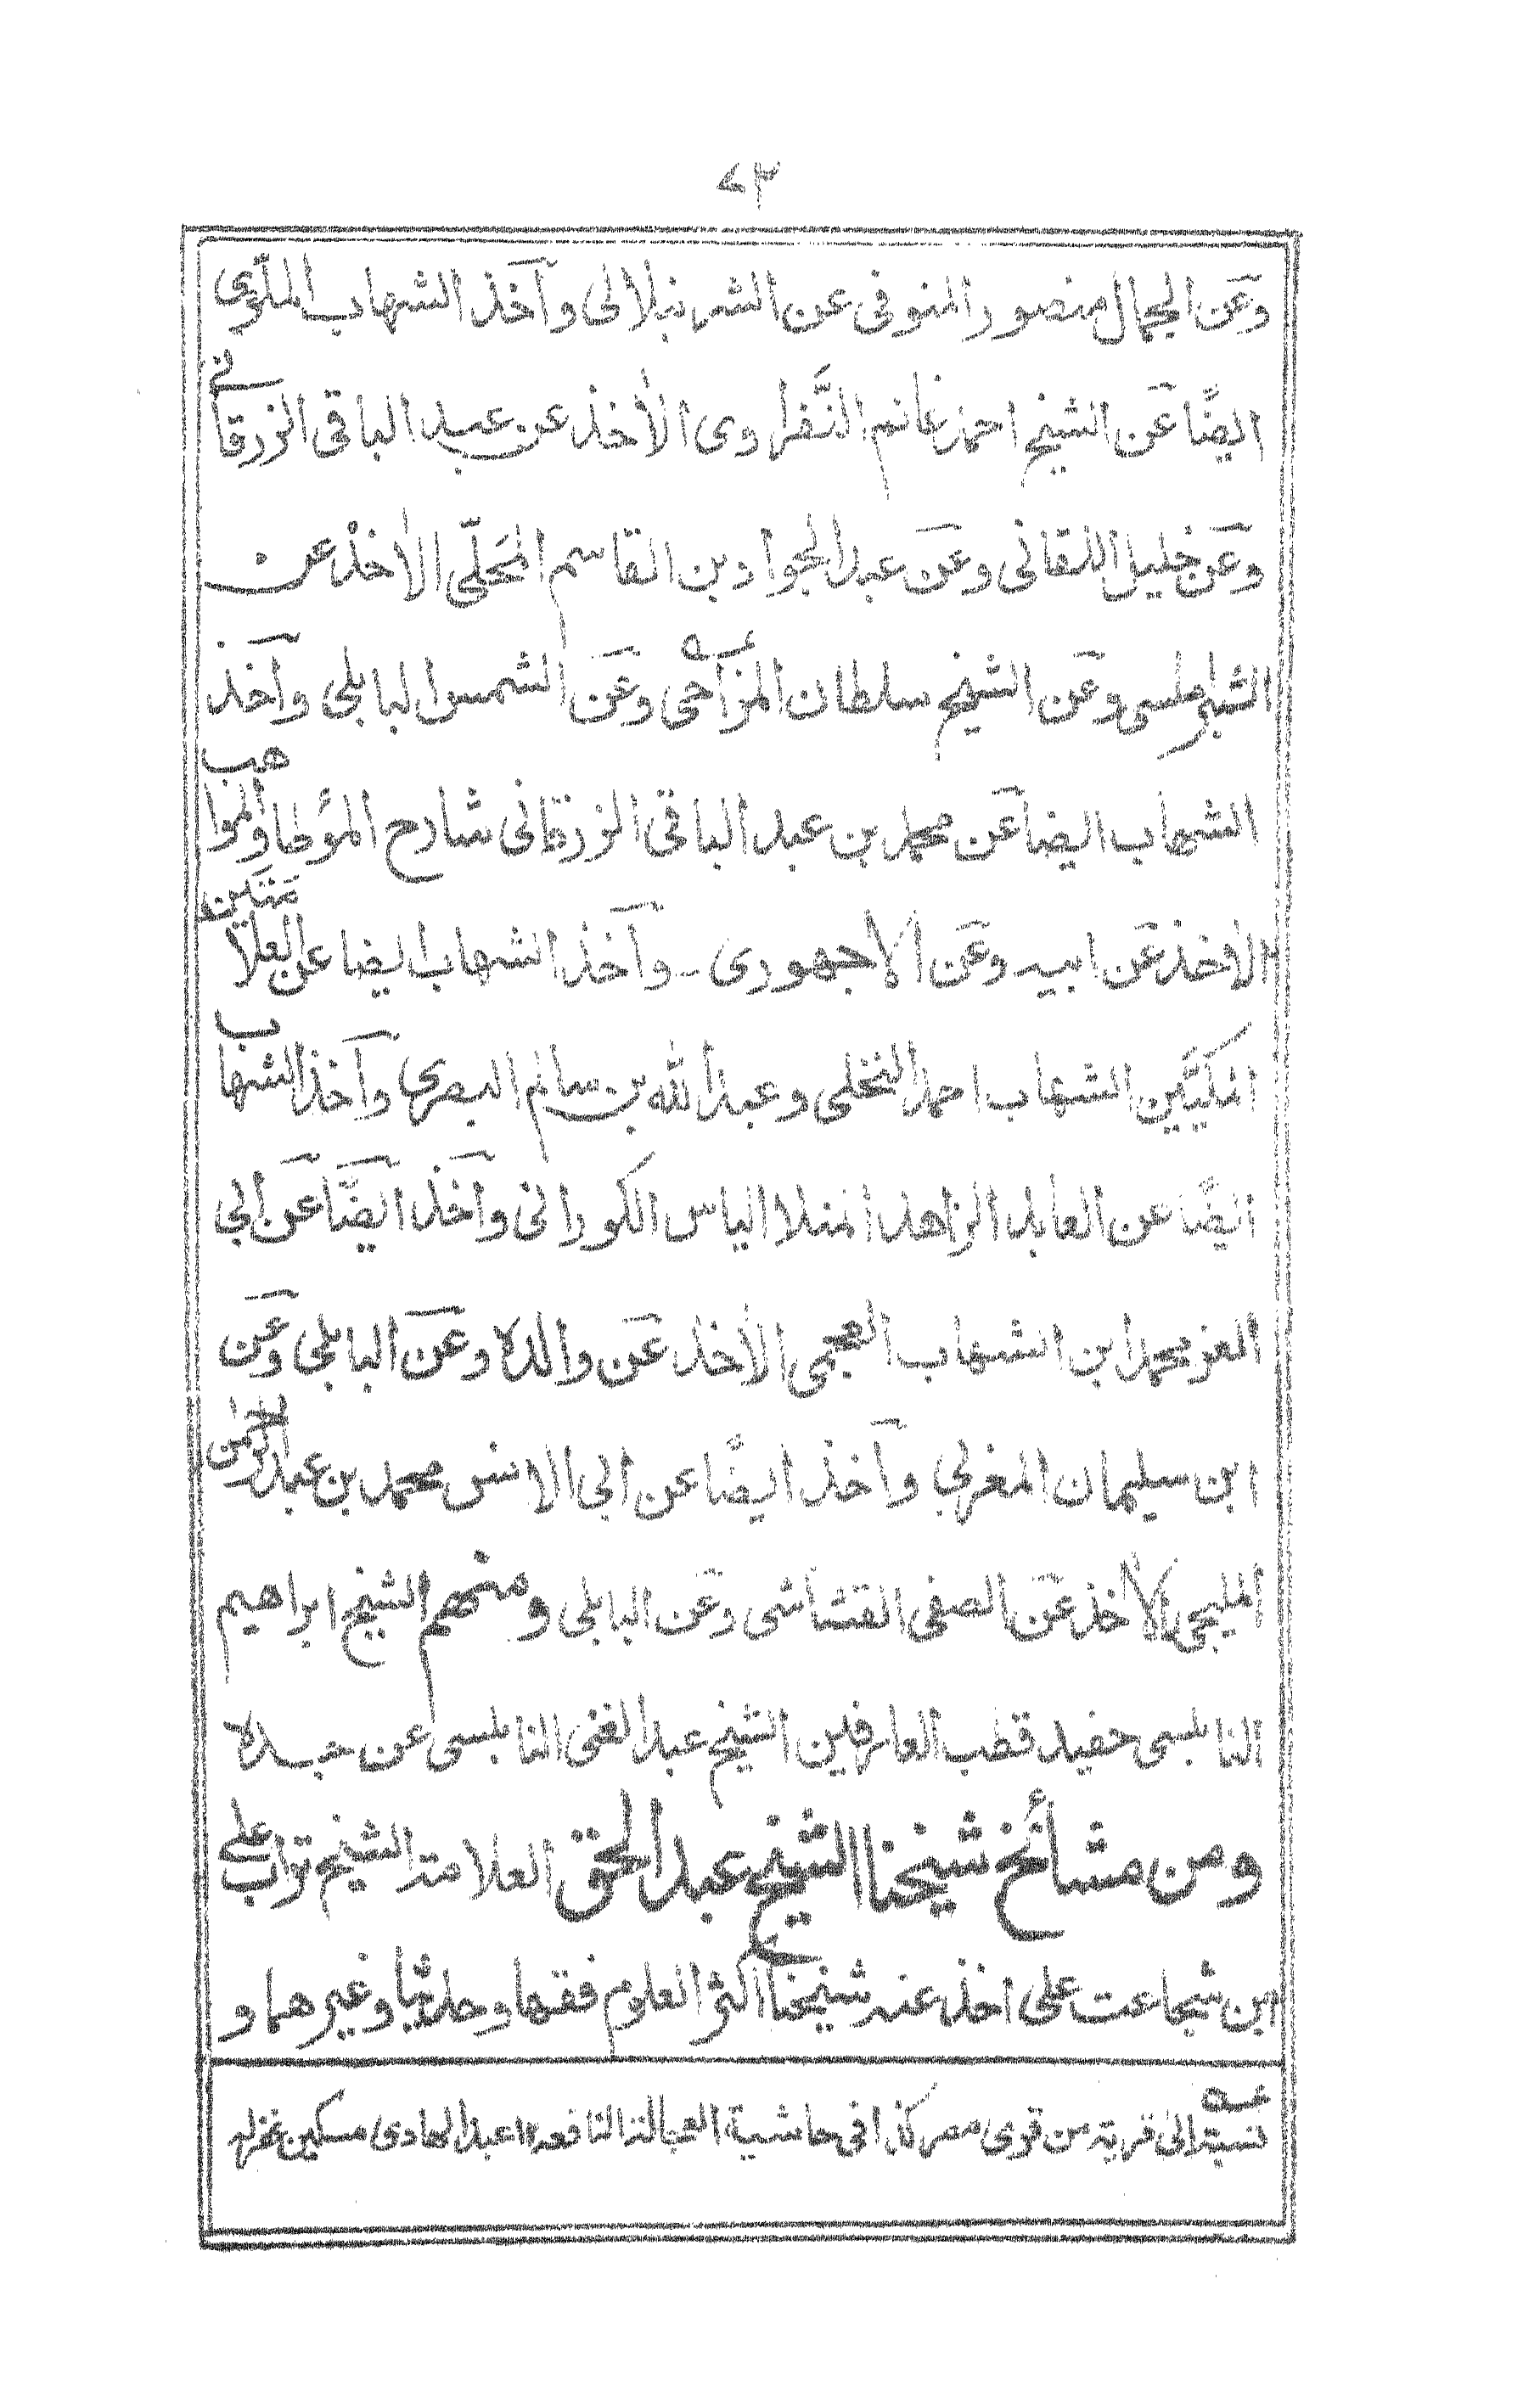 ٧٣
وعن الجمال منصور المنوفى عن الشرنبلالى وآخذ الشهاب الملّوى
ايضًا عن الشيخ احمد غانم النَّفراوى الاٰخذ عن عبد الباقى الزرقانى
وعن خليل اللقانى وعن عبد الجواد بن القاسم المَحلّى الاٰخذ عن
الشبراملسى وعن الشيخ سلطان المزاحى عـه وعن الشمس البابلى وآخذ
الشهاب ايضا عن محمد بن عبد الباقى الزرقانى شارح المؤطا والمواهب
الاٰخذ عن ابيه وعن الاجهورى ـ وآخذ الشهاب ايضا عن العلامتين
المكيَّين الشهاب احمد النخلى وعبد الله بن سالم البصرى وآخذ الشهاب
ايضًا عن العابد الزاهد المنلا الياس الكورانى وآخذ ايضًا عن ابى
العز محمد ابن الشهاب العجمى الاٰخذ عن والده وعن البابلى وعن
ابن سليمان المغربى وآخذ ايضًا عن ابى الانس محمد بن عبد الرحمٰن
المليجى الاٰخذ عن الصفى القشاشى وعن البابلى ومنهم الشيخ ابراهيم
النابلسى حفيد قطب العارفين الشيخ عبد الغنى النابلسى عن جده
ومن مشائخ شيخنا الشيخ عبد الحق العلامة الشيخ تراب على
ابن شجاعت على اخذ عنه شيخنا اكثر العلوم فقها وحديثا وغيرهما و
عـه نسبة الىٰ قرية من قرى مصر كذا فى حاشية العجالة النافعة ١٢ عبد الهادى مسكين غفرله